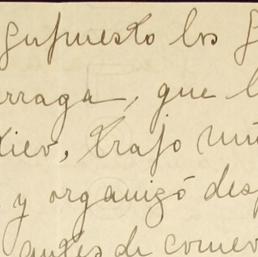 supuesto los
rraga, que l
xiev, trajo mu
y organizó des
antes de comer